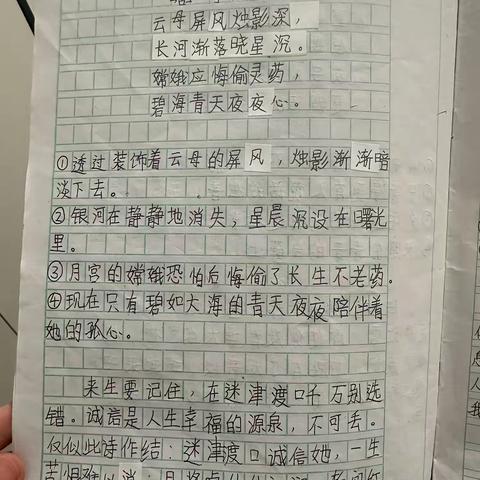 云母屏风烛影深，
长河渐落晓星沉。
嫦娥应悔偷灵药，
碧海青天夜夜心。
①透过装饰着云母的屏风，烛影渐渐暗
淡下去。
②银河在静静地消失，星晨沉设在曙光
里。
③月宫的嫦娥恐怕后悔偷了长生不老药。
④现在只有碧如大海的青天夜夜陪伴着
她的孤心。
来生要记住，在迷津渡口千万别选
错。诚信是人生幸福的源泉，不可丢。
仅以此诗作结：迷津渡口诚信她，一生